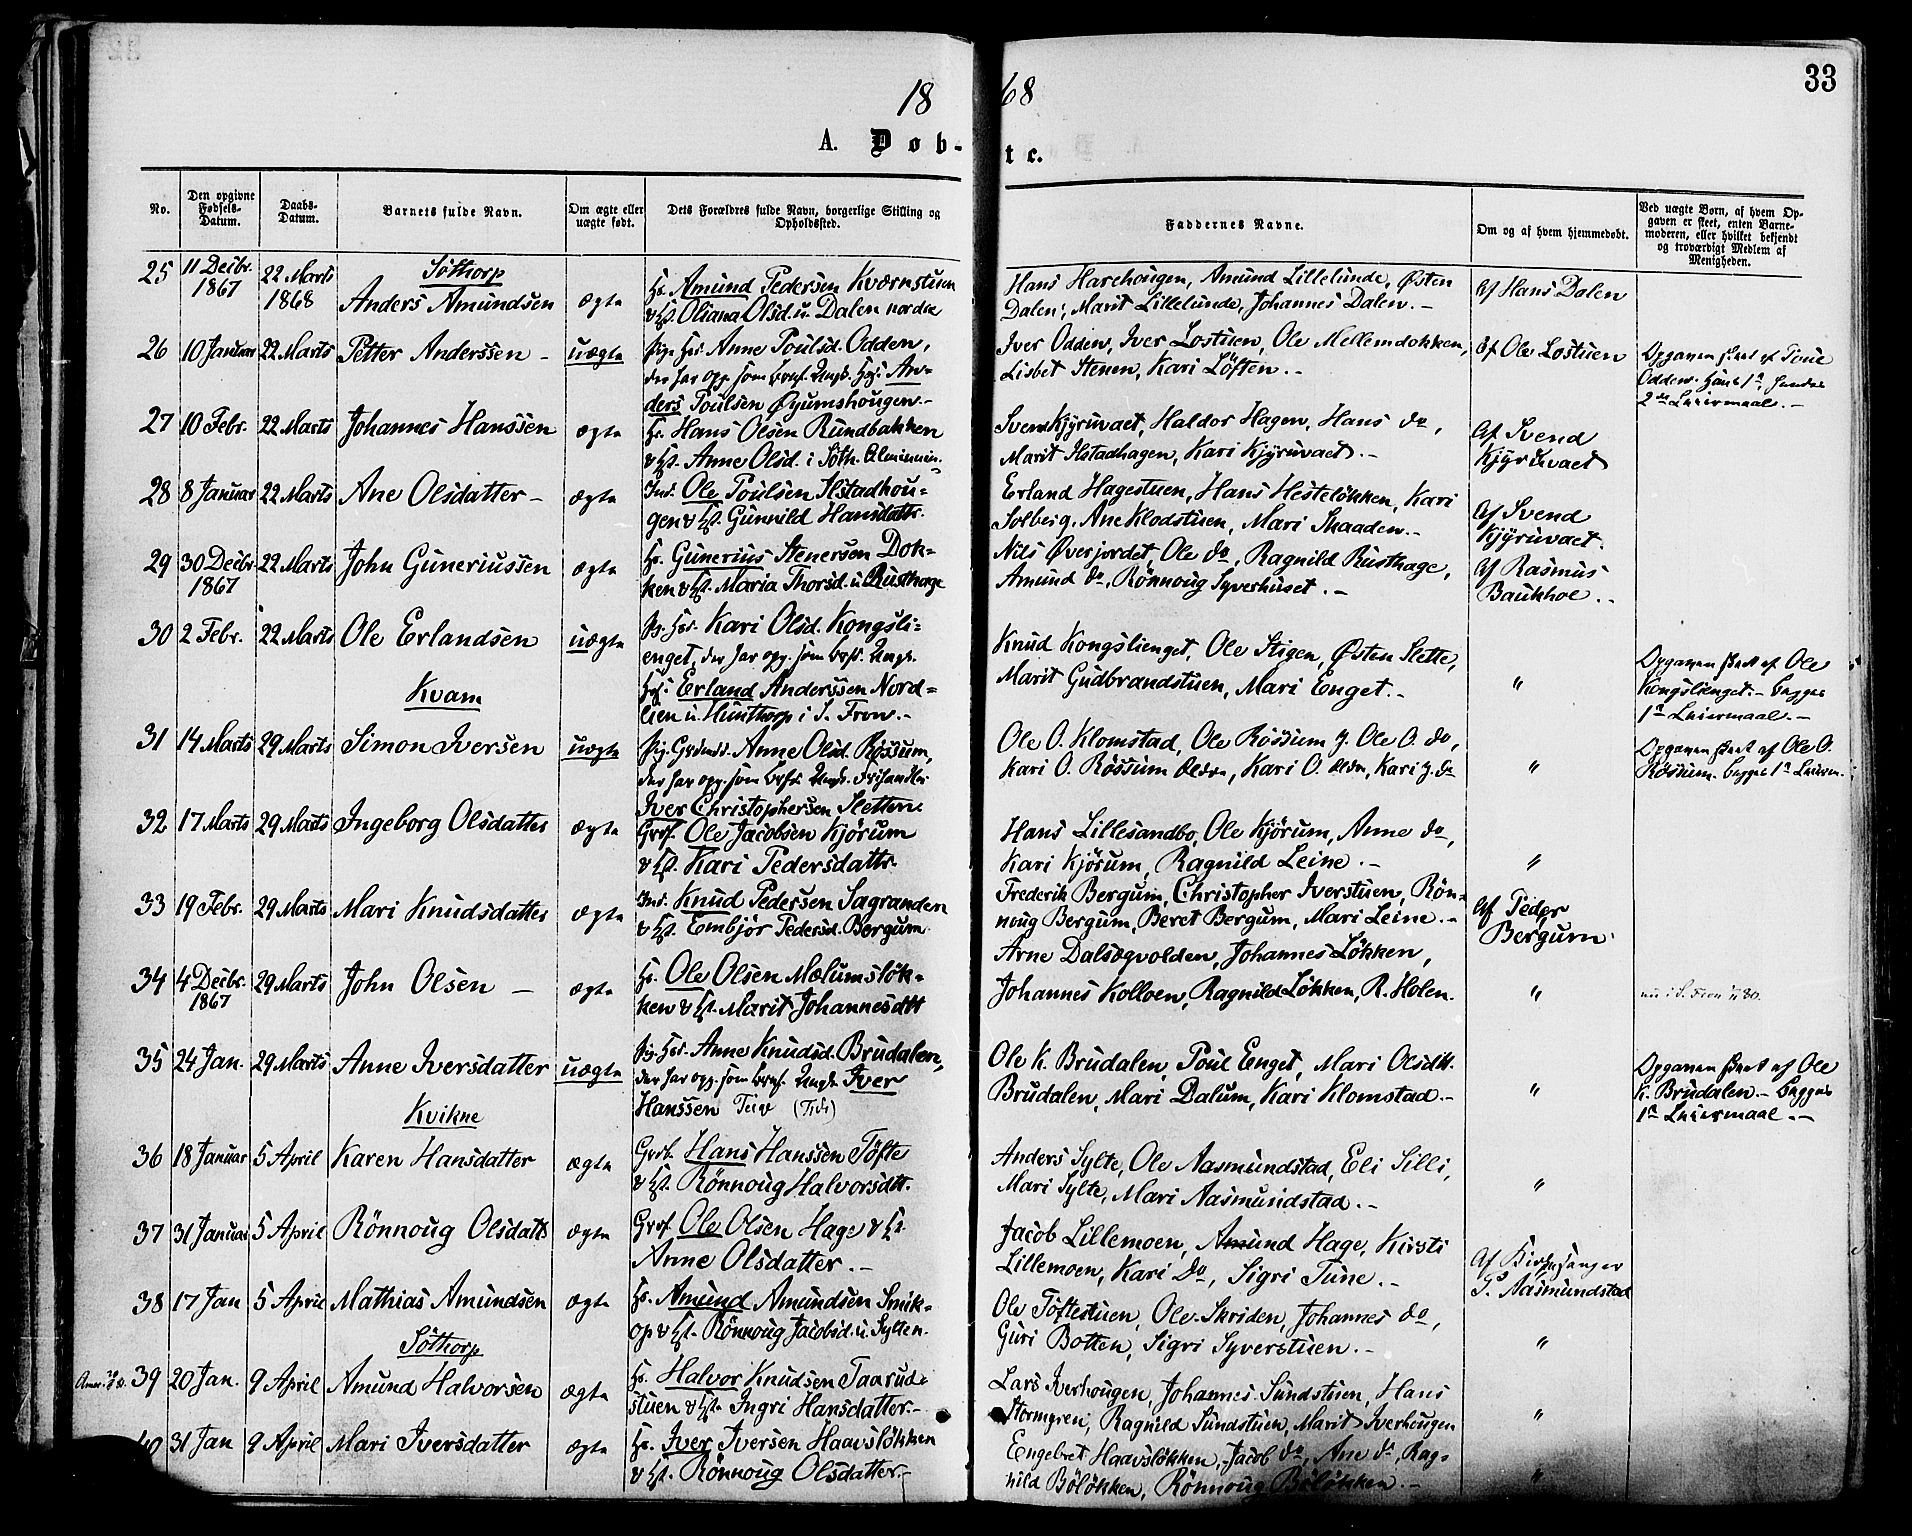 33
18 68
A. Döb- te.
No.
Den opgivne Fødsels-Datum.
Daabs-Datum.
Barnets fulde Navn.
Om ægte eller uægte født.
Dets Forældres fulde Navn, borgerlige Stilling og Opholdssted.
Faddernes Navne.
Om og af hvem hjemmedøbt.
Ved uægte Børn, af hvem Opgaven er skeet, enten Barnemoderen, eller hvilket bekjendt og troværdigt Medlem af Menigheden.
Söthorp
25 11 Decbr. 1867 22 Marts 1868 Anders Amundsen ægte
Hs. Amund Pedersen Kværnstuen
& Hst. Oliana Olsd. u. Dalen nordre
Hans Harehougen, Amund Lillelunde, Østen
Dalen, Marit Lillelunde, Johannes Dalen.-
Af Hans Dalen
26 10 Januar 22 Marts Petter Anderssen - uægte
Pige Hs. Anne Poulsd. Odden,
der har opg. som Brnf. Ungk. Hs. An-
ders Poulsen Øyumshougen.-
Iver Odden, Iver Lostuen, Ole Mellemdokken,
Lisbet Stenen, Kari Löften.-
Af Ole Lostuen
Opgaven skeet af Poul
Odden. Hans 1ste, hendes
2det Leiermaal.-
27 10 Febr. 22 Marts Johannes Hanssen ægte
Hs. Hans Olsen Rundbakken
& Hst. Anne Olsd. i Söth. Alminnin.
Svend Kjyruvaet, Haldor Hagen, Hans do,
Marit Ilstadhagen, Kari Kjyruvaet.-
Af Svend
Kjyruvaet
28 8 Januar 22 Marts Ane Olsdatter- ægte
Inds. Ole Poulsen Ilstadhou-
gen & Hst. Gunnild Hansdattr.
Erland Hagestuen, Hans Hesteløkken, Kari
Solberg, Ane Klodstuen, Mari Skaaden.-
Af Svend
Kjyruvaet.
29 30 Decbr 1867 22 Marts John Guneriussen ægte
Hs. Gunerius Stenersen Dok-
ken & Hst. Maria Thorsd. u. Rusthage
Nils Øverjordet, Ole do, Ragnild Rusthage,
Amund do, Rönnoug Syverhuset.-
Af Rasmus
Baukhol.-
30 2 Febr. 22 Marts Ole Erlandsen uægte
Pg. Hs. Kari Olsd. Kongsli-
enget, der har opg. som Brnf. Ungk.
Hs. Erland Anderssen Nord-
lien u. Hunthorp i S. Fron.-
Knud Kongslienget, Ole Stigen, Østen Slette,
Marit Gudbrandstuen, Mari Enget.-
"
Opgaven skeet af Ole
Kongslienget.- begges
1ste Leiermaal.-
Kvam
31 14 Marts 29 Marts Simon Iversen uægte
Pig. Anne Olsd. Rössum,
der har opg. som Brnf. Ungk.
Iver Christophersen Sletten.
Ole O. Klomstad, Ole Rössum y. Ole O. do,
Kari O. Rössum, Kari O., Kari y. do
"
Opgaven skeet af Ole O.
Rössum. begges 1ste Leierm.
32 17 Marts 29 Marts Ingeborg Olsdatter ægte
Grbr. Ole Jacobsen Kjörum
& Hst. Kari Pedersdattr.
Hans Lillesandbo, Ole Kjörum, Anne do,
Kari Kjörum, Ragnild Leine.-
"
33 19 Febr. 29 Marts Mari Knudsdatter ægte
Inds. Knud Pedersen Sagranden
& Hst. Embjör Pedersd. Bergum.
Frederik Bergum, Christopher Iverstuen, Rön-
noug Bergum, Beret Bergum, Mari Leine.-
Af Peder
Bergum.
34 4 Decbr. 1867 29 Marts John Olsen - ægte
Hs. Ole Olsen Mælumsløk-
ken & Hst. Marit Johannesdtt
Arne Dalsægvolden, Johannes Løkken,
Johannes Kolloen, Ragnild Løkken, R. Holen.
"
nu i S. Fron 80.
35 24 Jan. 29 Marts Anne Iversdatter uægte
Pig. Hs. Anne Knudsd. Brudalen,
der har opg. som Brnf. Ungk. Iver
Hanssen
Ole K. Brudalen, Poul Enget, Mari Olsdtt.
Brudalen, Mari Dalum, Kari Klomstad.-
"
Opgaven skeet af Ole
K. Brudalen.- begges
1ste Leiermaal.-
Kvikne
36 18 Januar 5 April Karen Hansdatter ægte
Grbr. Hans Hanssen Töfte
& Hst. Rönnoug Halvorsdtt.
Anders Sylte, Ole Aasmundstad, Eli Silli,
Mari Sylte, Mari Aasmundstad.-
"
37 31 Januar 5 April Rönnoug Olsdattr ægte
Grbr. Ole Olsen Hage & Hst.
Anne Olsdatter.-
Jacob Lillemoen, Amund Hage, Kirsti
Lillemoen, Kari do, Sigri Tune.-
Af Kirkesanger
P. Aasmundstad
38 17 Jan 5 April Mathias Amundsen ægte
Hs. Amund Amundsen Smik-
op & Hst. Rönnoug Jacobsd. u. Sylten.
Ole Töftestuen, Ole Skriden, Johannes do,
Guri Botten, Sigri Syverstuen.-
"
Söthorp
39 20 Jan. 9 April Amund Halvorsen ægte
Hs. Halvor Knudsen Taarud-
stuen & Hst. Ingri Hansdatter.-
Lars Iverhougen, Johannes Sundstuen, Hans
Stormyren, Ragnild Sundstuen, Marit Iverhougen
"
40 31 Jan 9 April Mari Iversdatter ægte
Hs. Iver Iversen Haavsløkken
& Hst. Rönnoug Olsdatter.-
Engebret Haavsløkken, Jacob do, Ane do, Rag-
nild Böløkken, Rönnoug Böløkken.-
"